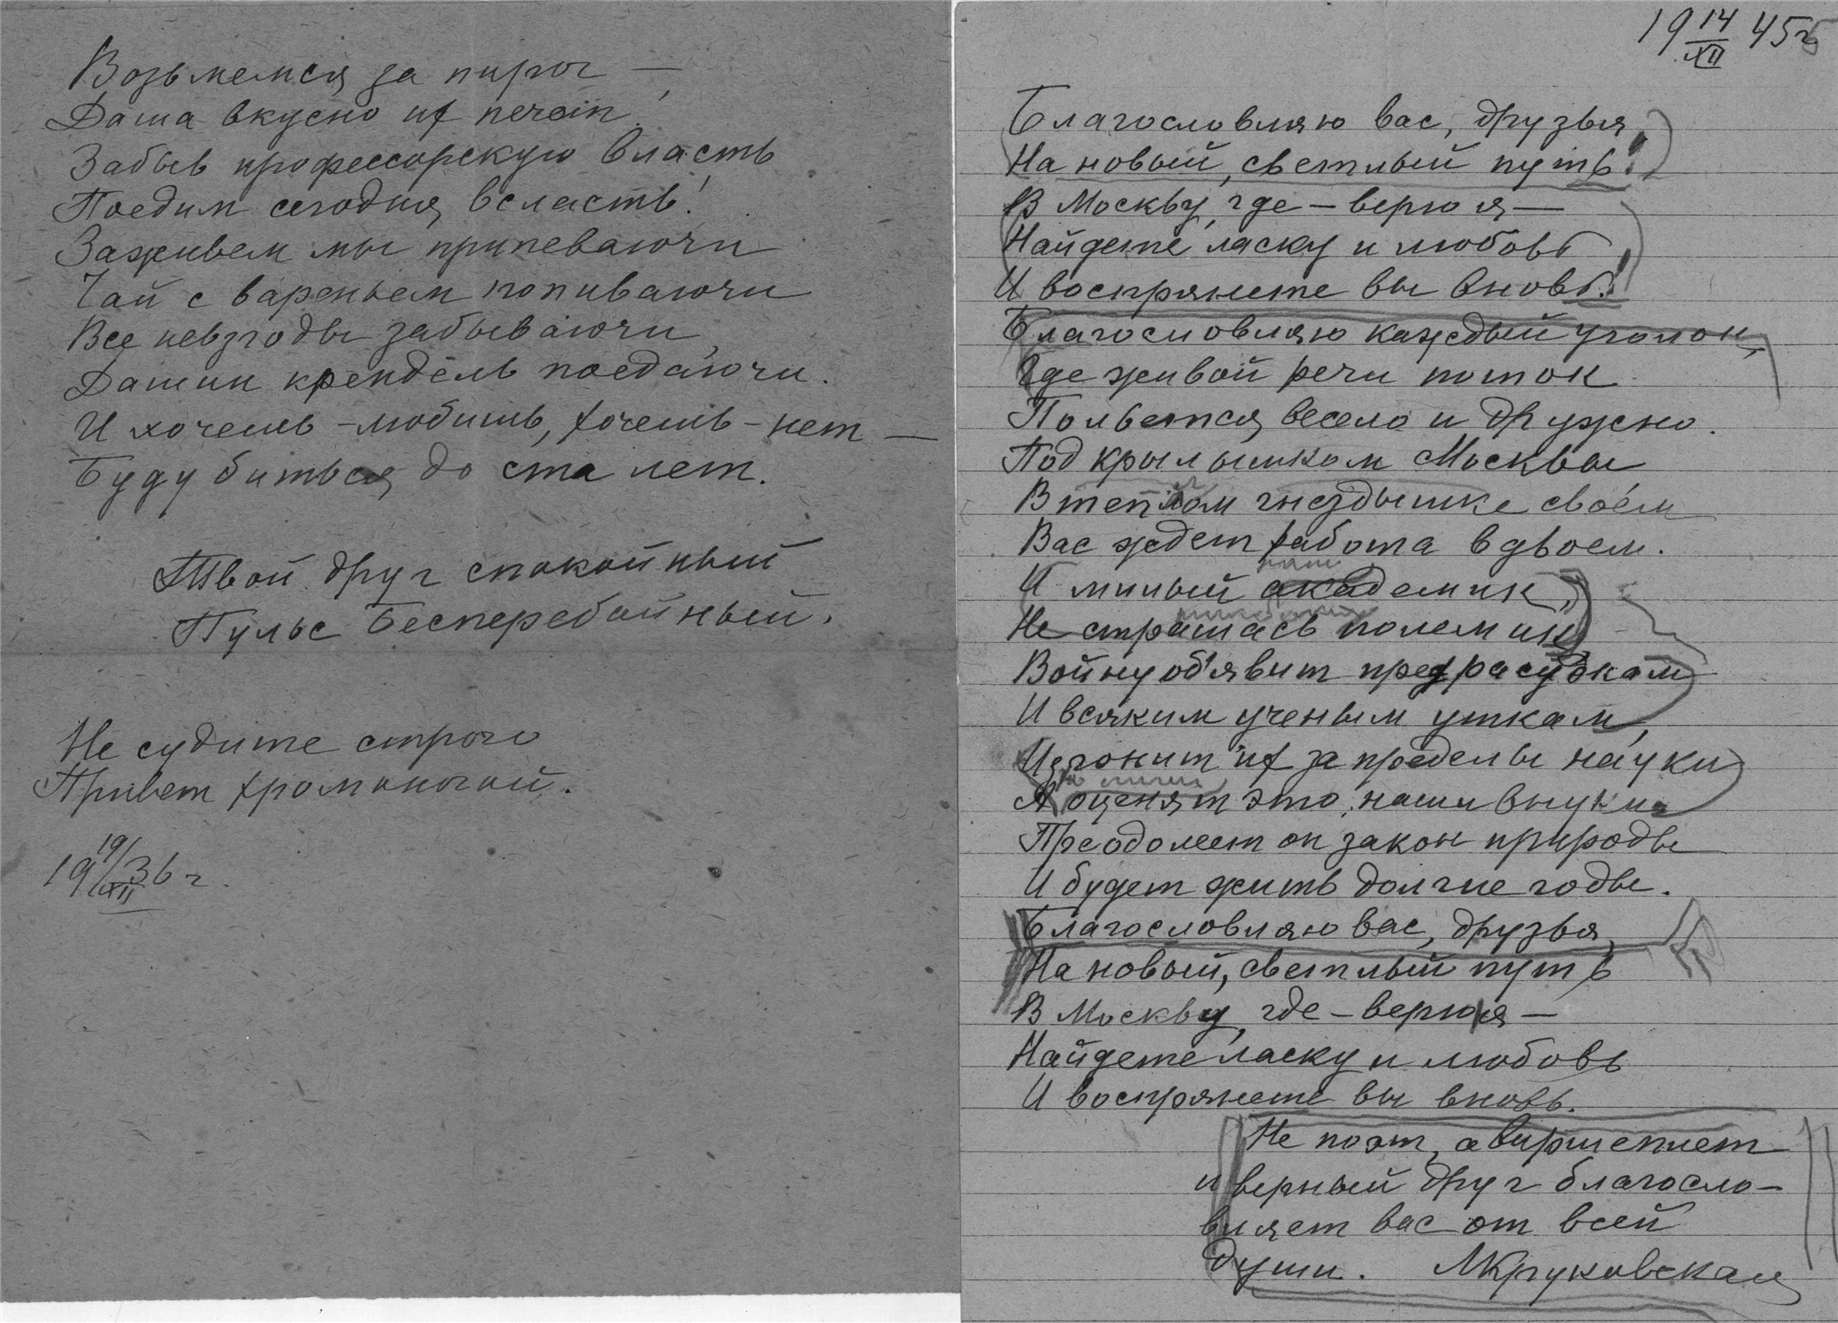 Возьмемся за пирог —
Даша вкусно их печёт!
Забыв профессорскую власть
Поедим сегодня всласть!
Заживем мы припеваючи
Чай с вареньем попиваючи
Все невзгоды забываючи,
Дашин крендель поедаючи.
И хочешь – любишь, хочешь – нет —
Буду биться до ста лет.
Твой друг спокойный
Пульс Бесперебойный.
Не судите строго
Привет хромоногой.
19 19/XII 36 г.
19 14/XII 45 г.
Благословляю вас, друзья,
На новый, светлый путь!
В Москву, где – верю я —
Найдете ласку и любовь
И воспрянете вы вновь!
Благословляю каждый уголок,
Где живой речи поток
Польется весело и дружно.
Под крылышком Москвы
В теплом гнездышке своём
Вас ждет работа вдвоем.
И милый академик,
Не страшась полемик,
Войну об'явит предрассудкам
И всяким ученым уткам,
Изгонит их за пределы науки
А оценят это наши внуки.
Преодолеет он закон природы
И будет жить долгие годы.
Благословляю вас, друзья,
На новый, светлый путь
В Москву, где – верю я —
Найдете ласку и любовь
И воспрянете вы вновь.
Не поэт, а виршеплет
и верный друг благосло-
вляет вас от всей
души. МКруковская